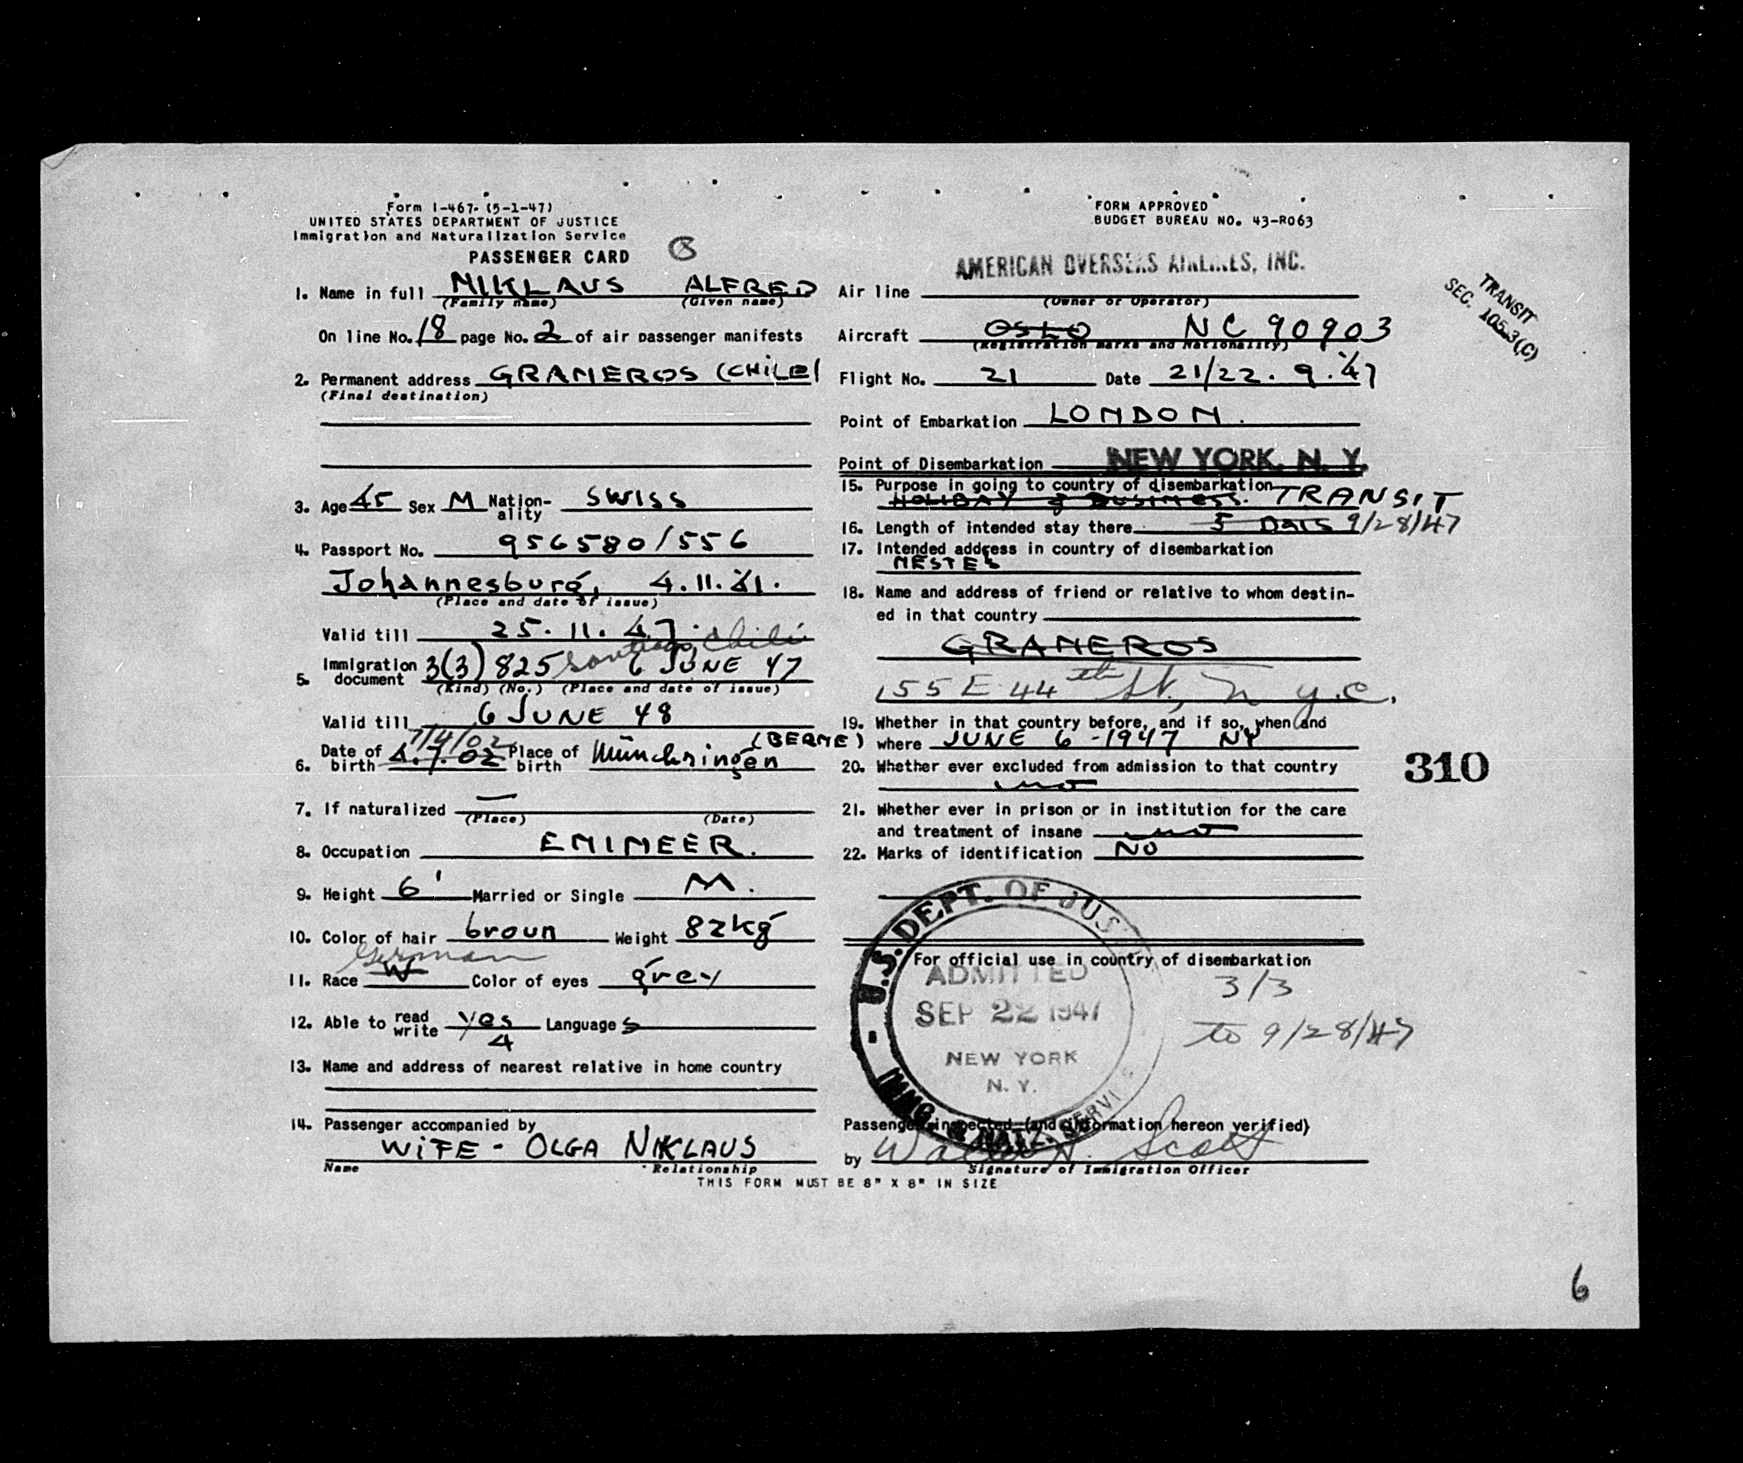 Form I-467- (5-1-47)
UNITED STATES DEPARTMENT OF JUSTICE
Immigration and Naturalization Service
PASSENGER CARD
1. Name in full NIKLAUS ALFRED
(Family name) (Given name)
On line No. 18 page No. 2 of air passenger manifests
2. Permanent address GRANEROS (CHILE)
(Final destination)
3. Age 45 Sex M Nation-ality SWISS
4. Passport No. 956580/556
Johannesburg, 4.11.41.
(Place and date of issue)
Valid till 25.11.47.
Santiago, Chili
5. Immigration document 3(3) 825 6 JUNE 47
(Kind) (No.) (Place and date of issue)
Valid till 6 JUNE 48
7/4/02 (BERNE)
6. Date of birth 4.7.02 Place of birth Münchringen
7. If naturalized —
(Place) (Date)
8. Occupation ENINEER.
9. Height 6' Married or Single M.
10. Color of hair broun Weight 82kg
German
11. Race W Color of eyes grey
12. Able to read write yes Languages
4
13. Name and address of nearest relative in home country
14. Passenger accompanied by
WIFE - OLGA NIKLAUS
Name Relationship
THIS FORM MUST BE 8" X 8" IN SIZE
FORM APPROVED
BUDGET BUREAU NO. 43-R063
AMERICAN OVERSEAS AIRLINES, INC.
Air line
(Owner or Operator)
Aircraft OSLO NC 90903
(Registration marks and Nationality)
Flight No. 21 Date 21/22.9.47
Point of Embarkation LONDON.
Point of Disembarkation NEW YORK, N. Y.
15. Purpose in going to country of disembarkation
HOLIDAY & BUSINESS. TRANSIT
16. Length of intended stay there 5 DAYS 9/28/47
17. Intended address in country of disembarkation
18. Name and address of friend or relative to whom destin-
ed in that country
GRANEROS
155 E 44th St, N.Y.C.
19. Whether in that country before, and if so, when and
where JUNE 6 - 1947 NY
20. Whether ever excluded from admission to that country
no
21. Whether ever in prison or in institution for the care
and treatment of insane no
22. Marks of identification NO
For official use in country of disembarkation
3/3
to 9/28/47
U.S. DEPT. OF JUS
ADMITTED
SEP 22 1947
NEW YORK
N. Y.
IMMG. & NATZ. SERVI
Passenger inspected (and information hereon verified)
by Scott
Signature of Immigration Officer
TRANSIT
SEC. 105.3(C)
310
6